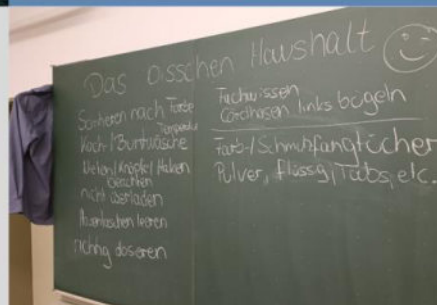 Das bisschen Haushalt
Sortieren nach Farbe
Temperatur
Koch-/Buntwäsche
Ketten/Knöpfe/Haken
beachten
nicht überladen
Hosentaschen leeren
richtig dosieren
Fachwissen
Cordhosen links bügeln
Farb-/Schmutzfangtücher
Pulver, flüssig, Tabs, etc.